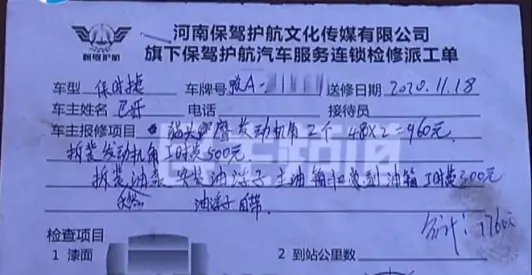 保驾护航
河南保驾护航文化传媒有限公司
旗下保驾护航汽车服务连锁检修派工单
车型 保时捷 车牌号 豫A- 送修日期 2020.11.18
车主姓名 电话 接待员
车主报修项目 发动机角 二个 48×2=960元
拆装发动机角工时费500元
拆装油泵 安装油浮子 主油箱 到 油箱工时费300元
油浮子自带
合计: 1760元
检查项目
1 漆面 2 到站公里数